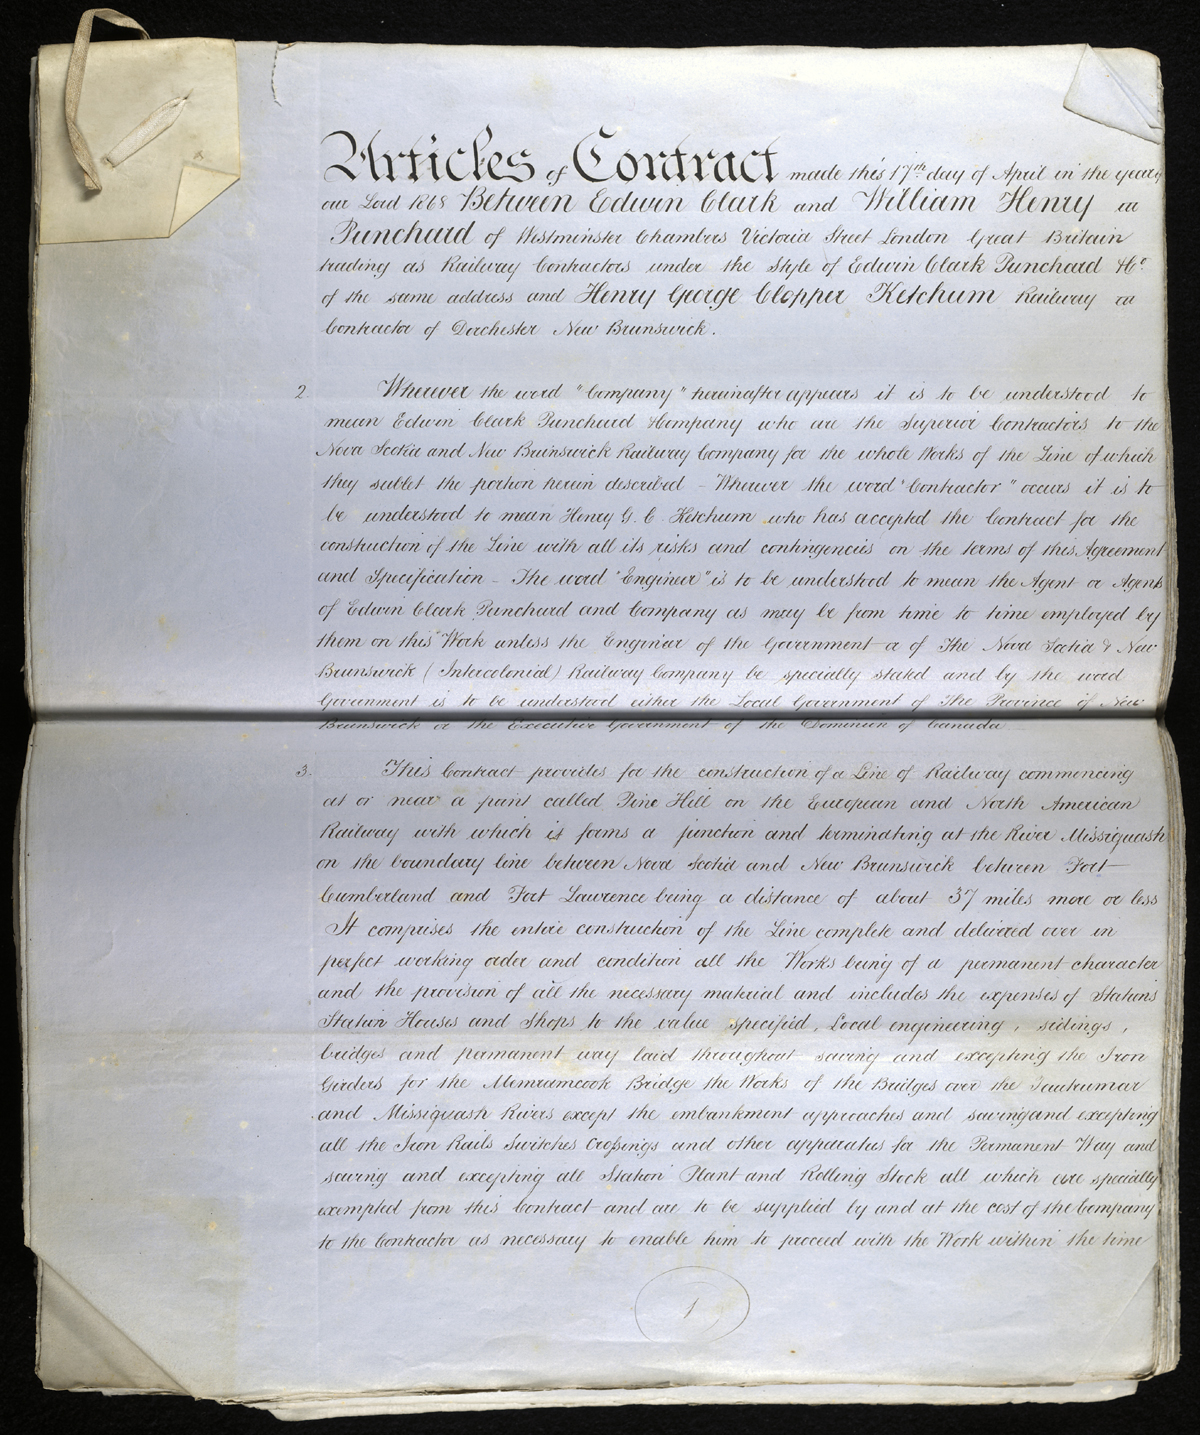 Articles of Contract made this 17th day of April in the year of
our Lord 1868 Between Edwin Clark and William Henry
Punchard of Westminster Chambers Victoria Street London Great Britain
trading as Railway Contractors under the Style of Edwin Clark Punchard & Co
of the same address and Henry George Clopper Ketchum Railway
Contractor of Dorchester New Brunswick.
2. Wherever the word "Company" hereinafter appears it is to be understood to
mean Edwin Clark Punchard & Company who are the Superior Contractors to the
Nova Scotia and New Brunswick Railway Company for the whole Works of the Line of which
they sublet the portion herein described - Wherever the word "Contractor" occurs it is to
be understood to mean Henry G. C. Ketchum who has accepted the Contract for the
construction of the Line with all its risks and contingencies on the terms of this Agreement
and Specification - The word "Engineer" is to be understood to mean the Agent or Agents
of Edwin Clark Punchard and Company as may be from time to time employed by
them on this Work unless the Engineer of the Government or of The Nova Scotia & New
Brunswick (Intercolonial) Railway Company be specially stated and by the word
Government is to be understood either the Local Government of The Province of New
Brunswick or the Executive Government of the Dominion of Canada
3. This Contract provides for the construction of a Line of Railway commencing
at or near a point called Pine Hill on the European and North American
Railway with which it forms a junction and terminating at the River Missiguash
on the boundary line between Nova Scotia and New Brunswick between Fort
Cumberland and Fort Lawrence being a distance of about 37 miles more or less
It comprises the entire construction of the Line complete and delivered over in
perfect working order and condition all the Works being of a permanent character
and the provision of all the necessary material and includes the expenses of Stations
Station Houses and Shops to the value specified, Local engineering, sidings,
bridges and permanent way laid throughout saving and excepting the Iron
Girders for the Memramcook Bridge the Works of the Bridges over the Tantramar
and Missiguash Rivers except the embankment approaches and saving and excepting
all the Iron Rails Switches Crossings and other apparatus for the Permanent Way and
saving and excepting all Station Plant and Rolling Stock all which are specially
exempted from this Contract and are to be supplied by and at the cost of the Company
to the Contractor as necessary to enable him to proceed with the Work within the time
1